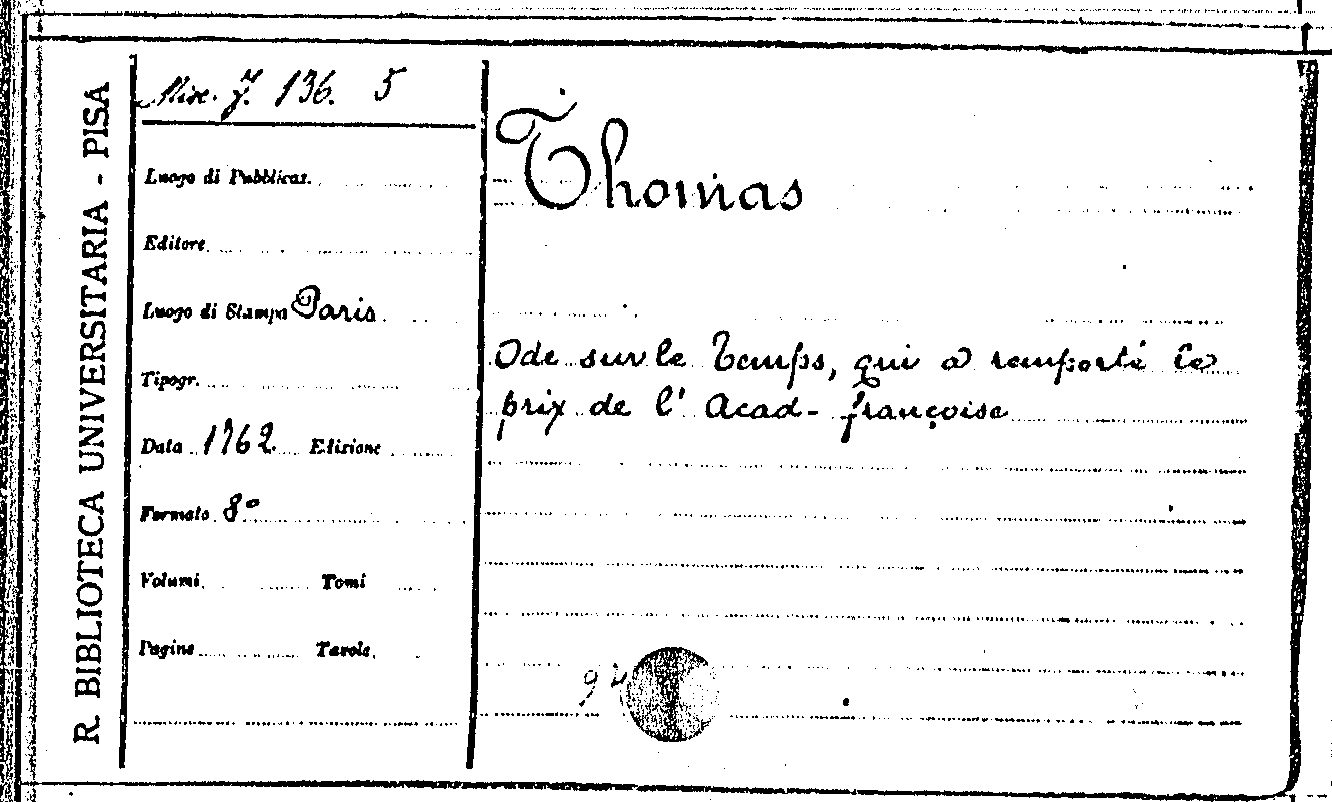 R. BIBLIOTECA UNIVERSITARIA - PISA
Misc. J. 136. 5
Luogo di Pubblicaz.
Editore
Luogo di Stampa Paris
Tipogr.
Data 1762 Edizione
Formato 8º
Volumi Tomi
Pagine Tavole
Thomas
Ode sur le Temps, qui a remporté le
prix de l' Acad- françoise